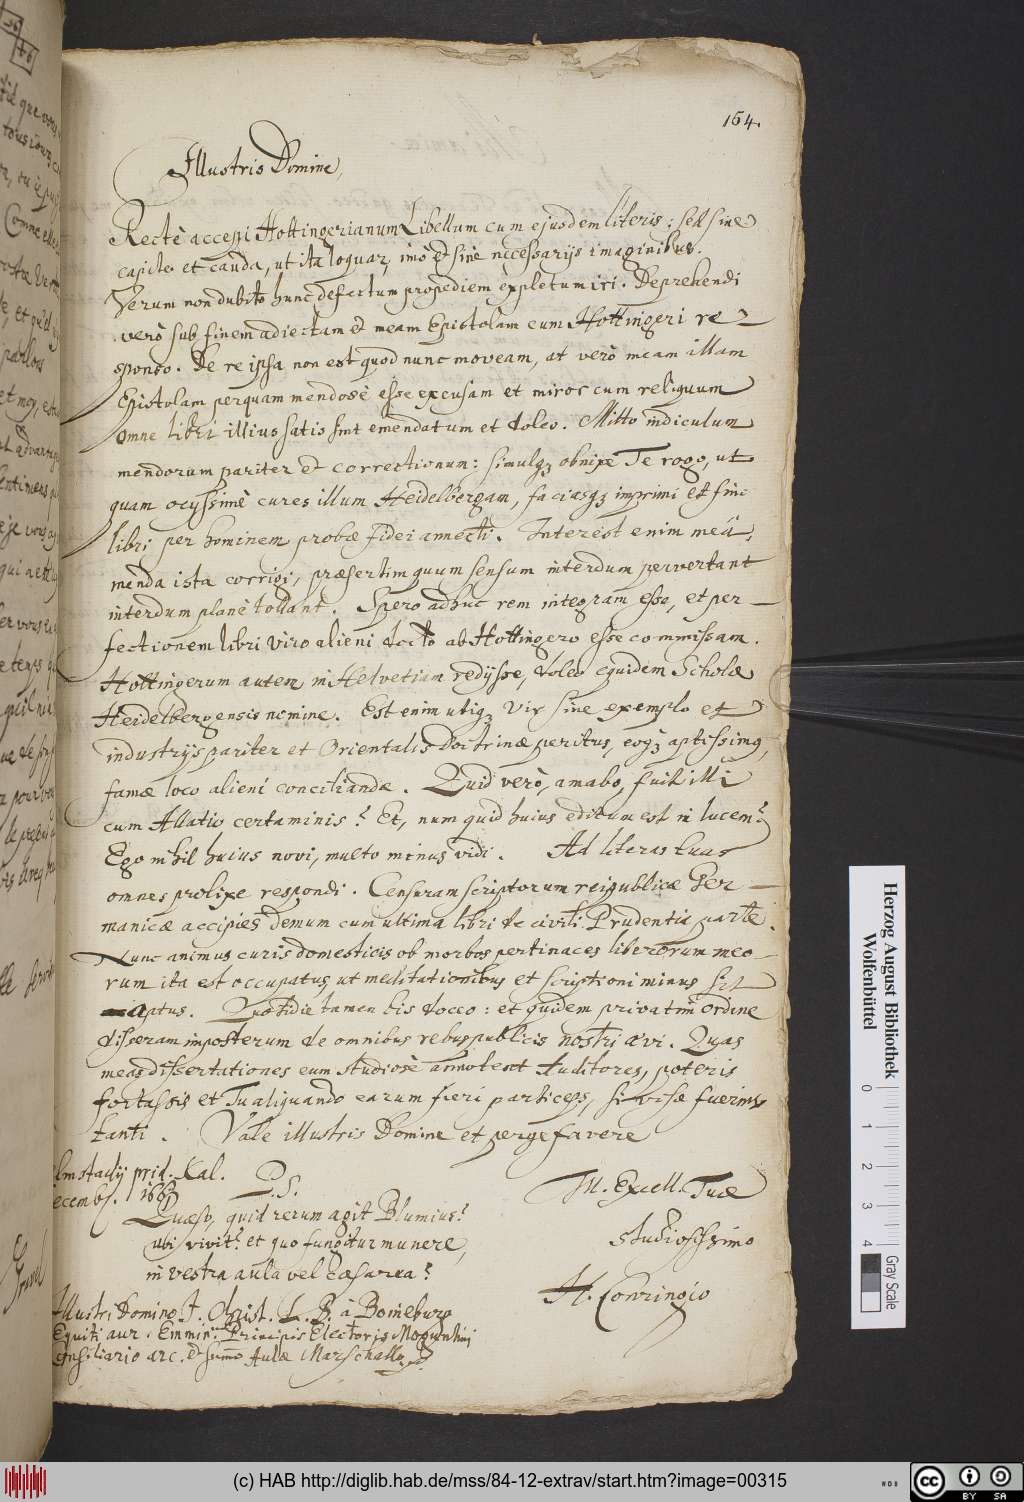 164.
Illustris Domine,
Rectè accepi Hottingerianum Libellum cum ejusdem literis: sed sine
capite et cauda, ut ita loquar, imò et sine necessarijs imaginibus.
Verum non dubito hunc defectum propediem expletum iri. Deprehendi
verò sub finem adiectam et meam Epistolam cum Hottingeri re-
sponso. De re ipsa non est quod nunc moveam, at verò meam illam
Epistolam perquam mendosè esse excusam et miror cum reliquum
omne libri illius satis sint emendatum et doleo. Mitto indiculum
mendorum pariter et correctionum: simulq; obnixe Te rogo, ut
quam ocyssimè cures illum Heidelbergam, faciasq; imprimi et fini
libri per hominem probæ fidei annecti. Interest enim meâ,
menda ista corrigi, præsertim quum sensum interdum pervertant
interdum planè tollant. Spero adhuc rem integram esse, et per-
fectionem libri viro alieni docto ab Hottingero esse commissam.
Hottingerum autem in Helvetiam redijsse, doleo equidem Scholæ
Heidelbergensis nomine. Est enim utiq; Vir sine exemplo et
industrijs pariter et Orientalis Doctrinæ peritus, eoq; aptissimq,
famæ loco alieni conciliandæ. Quid verò, amabo, fuit illi
cum Allatio certaminis? Et, num quid huius editum est in lucem?
Ego nihil huius novi, multo minus vidi. Ad literas tuas
omnes prolixe respondi. Censuram scriptorum reipublicæ Ger-
manicæ accipies demum cum ultima libri de civili Prudentia parte.
Nunc animus curis domesticis ob morbos pertinaces liberorum meo-
rum ita est occupatus, ut meditationibus et scriptioni minus sit
aptus. Quotidie tamen bis doceo: et quidem privatim ordine
disseram imposterum de omnibus rebuspublicis nostri ævi. Quas
meas dissertationes cum studiosè annotent Auditores, poteris
fortassis et Tu aliquando earum fieri particeps, si visæ fuerint
tanti. Vale illustris Domine et perge favere
lmstadij prid. Kal.
ecembr. 166
Ill. Excell. Tuæ
studiosissimo
H. Conringio
P.S.
Quæso, quid rerum agit Blumius?
ubi vivit? et quo fungitur munere,
in vestra aula vel Cæsarea?
Illustri Domino J. Christ. L. B. à Boineburg
Equiti aur. Eminm. Principis Electoris Moguntini
Consiliario arc. et summo Aulæ Marschallo
Herzog August Bibliothek
Wolfenbüttel
0
1
2
3
4
Gray Scale
(c) HAB http://diglib.hab.de/mss/84-12-extrav/start.htm?image=00315
cc
BY SA